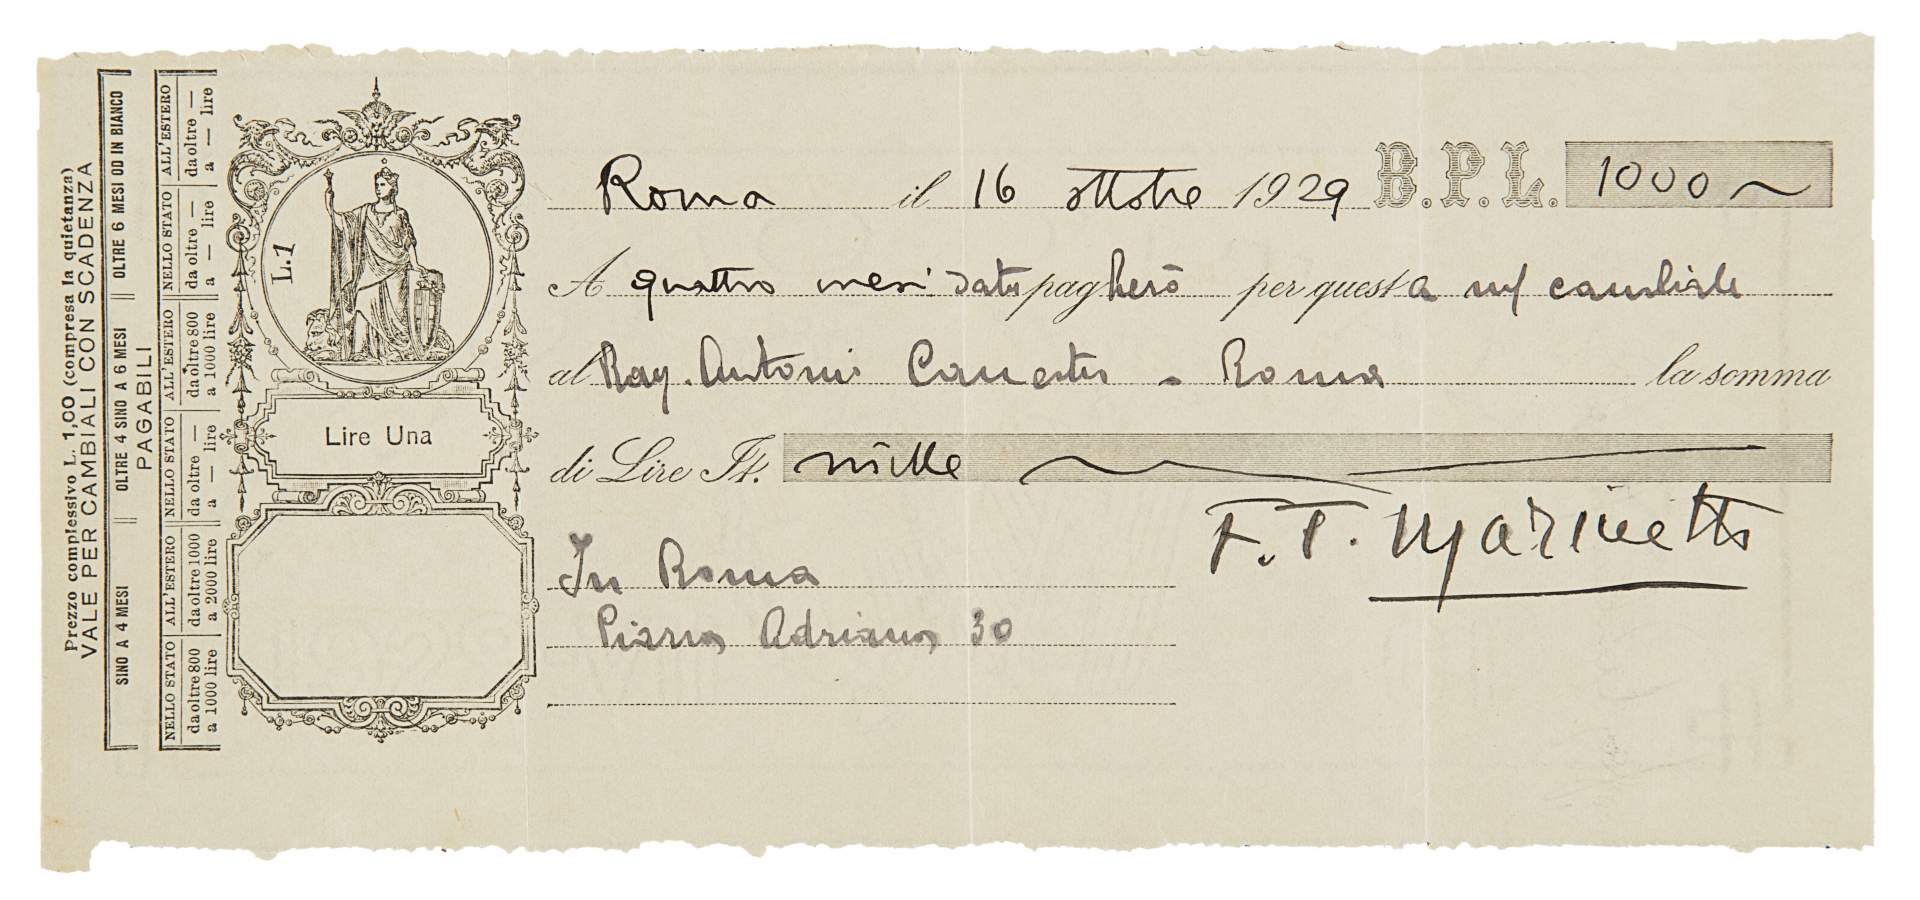 Prezzo complessivo L. 1,00 (compresa la quietanza)
VALE PER CAMBIALI CON SCADENZA
SINO A 4 MESI OLTRE 4 SINO A 6 MESI OLTRE 6 MESI OD IN BIANCO
PAGABILI
NELLO STATO ALL'ESTERO NELLO STATO ALL'ESTERO NELLO STATO ALL'ESTERO
da oltre 800 da oltre 1000 da oltre — da oltre 800 da oltre — da oltre —
a 1000 lire a 2000 lire a — lire a 1000 lire a — lire a — lire
L.1
Lire Una
Roma il 16 ottobre 1929 B.P.L. 1000
A quattro mesi data pagherò per questa cambiale
al Rag. Antonio Canestri - Roma la somma
di Lire It. mille
F. T. Marinetti
In Roma
Piazza Adriana 30